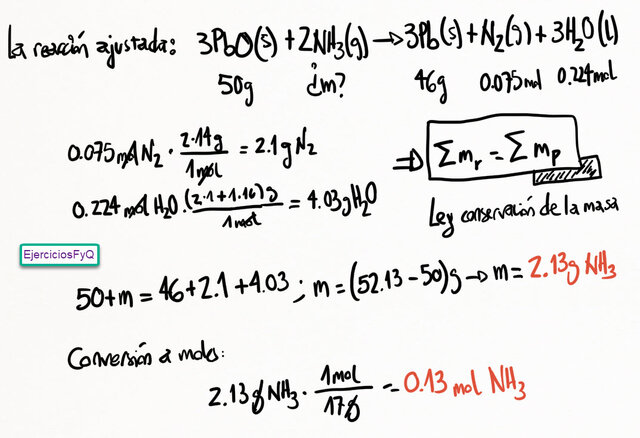 La reacción ajustada: 3PbO(s) + 2NH₃(g) → 3Pb(s) + N₂(g) + 3H₂O(l)
50g ¿m? 46g 0.075mol 0.224mol
0.075 mol N₂ · 2·14g / 1mol = 2.1g N₂
⇒ Σmᵣ = Σmₚ
0.224 mol H₂O · (2·1+1·16)g / 1mol = 4.03g H₂O
Ley conservación de la masa
EjerciciosFyQ
50+m = 46+2.1+4.03 ; m = (52.13-50)g → m = 2.13g NH₃
Conversión a moles:
2.13 g NH₃ · 1mol / 17g = 0.13 mol NH₃